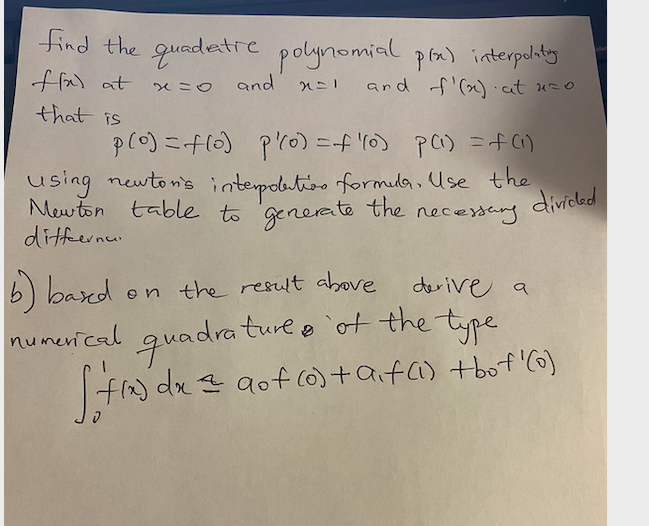 find the quadratic polynomial p(x) interpolating
f(x) at x=0 and x=1 and f'(x) at x=0
that is
p(0) = f(0) p'(0) = f'(0) p(1) = f(1)
using newton's interpolation formula. Use the
Newton table to generate the necessary divided
difference
b) based on the result above derive a
numerical quadrature of the type
∫₀¹ f(x) dx ≈ a₀f(0) + a₁f(1) + b₀f'(0)